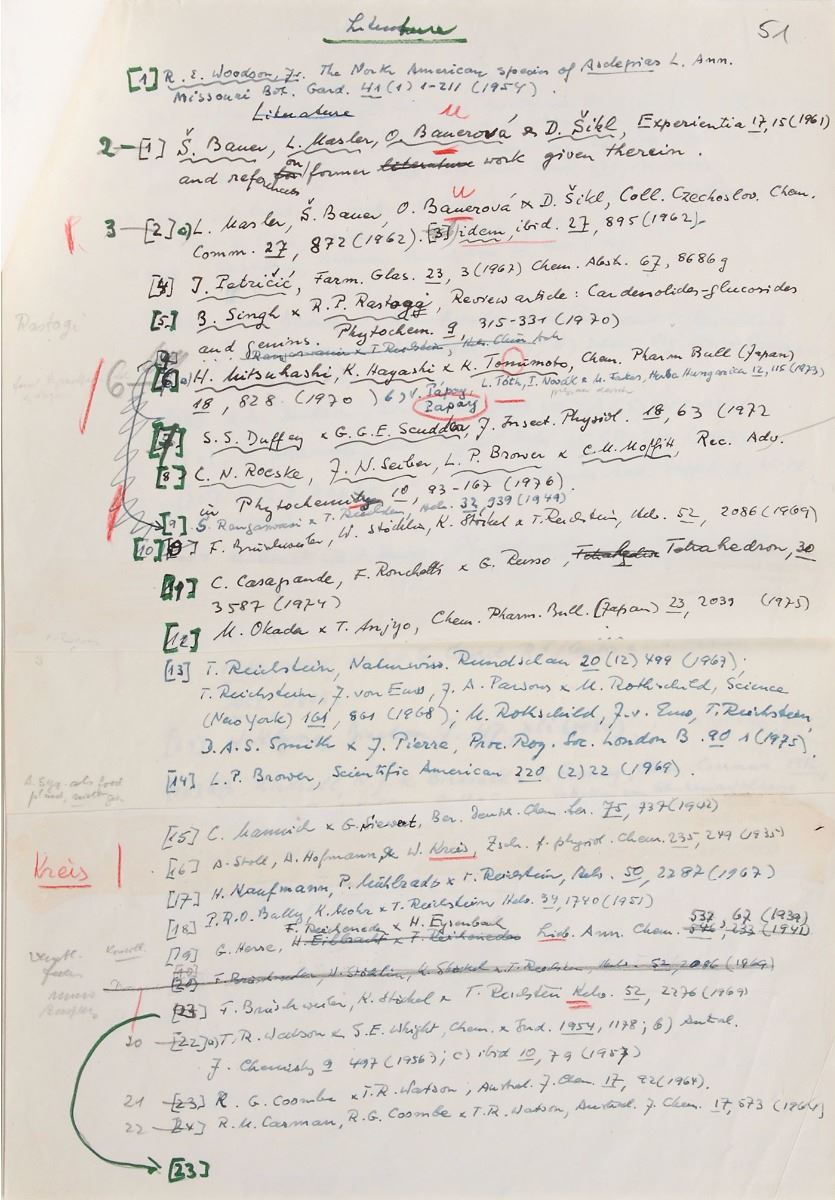 Literature
51
[1] R. E. Woodson, Jr. The North American species of Asclepias L. Ann.
Missouri Bot. Gard. 41 (1) 1-211 (1954).
Literature
2 — [1] Š. Bauer, L. Masler, O. Bauerová & D. Šikl, Experientia 17, 15 (1961)
and references on former literature work given therein.
3 — [2] a) L. Masler, Š. Bauer, O. Bauerová & D. Šikl, Coll. Czechoslov. Chem.
Comm. 27, 872 (1962). [3] idem, ibid. 27, 895 (1962).
[4] J. Petričić, Farm. Glas. 23, 3 (1967) Chem. Abst. 67, 8686g
[5] B. Singh & R. P. Rastogi, Review article: Cardenolides-glucosides
Rastogi
and genins. Phytochem. 9, 315-331 (1970)
[6] a) H. Mitsuhashi, K. Hayashi & K. Tomimoto, Chem. Pharm Bull (Japan)
18, 828 (1970) b) V. Pápay, L. Tóth, I. Novák & M. Fakas, Herba Hungarica 12, 115 (1973)
Pápay
[7] S. S. Duffey & G. G. E. Scudder, J. Insect. Physiol. 18, 63 (1972
[8] C. N. Roeske, J. N. Seiber, L. P. Brower & C. M. Moffitt, Rec. Adv.
in Phytochemistry 10, 93-167 (1976).
[9] S. Rangaswami & T. Reichstein, Helv. 32, 939 (1949)
[10] F. Brüschweiler, W. Stöcklin, K. Stöckel & T. Reichstein, Helv. 52, 2086 (1969)
[11] C. Casagrande, F. Ronchetti & G. Russo, Tetrahedron Tetrahedron, 30
3587 (1974)
[12] M. Okada & T. Anjyo, Chem. Pharm. Bull. (Japan) 23, 2039 (1975)
[13] T. Reichstein, Naturwiss. Rundschau 20 (12) 499 (1967);
T. Reichstein, J. von Euw, J. A. Parsons & M. Rothschild, Science
(New York) 161, 861 (1968); M. Rothschild, J. v. Euw, T. Reichstein,
D. A. S. Smith & J. Pierre, Proc. Roy. Soc. London B. 90 1 (1975).
[14] L. P. Brower, Scientific American 220 (2) 22 (1969).
[15] C. Mannich & G. Siewert, Ber. Deutsch. Chem. Ges. 75, 737 (1942)
[16] A. Stoll, A. Hofmann, & W. Kreis, Zschr. f. physiol. Chem. 235, 249 (1935)
Kreis
[17] H. Kaufmann, P. Mühlradt & T. Reichstein, Helv. 50, 2287 (1967)
[18] P. R. O. Bally, K. Mohr & T. Reichstein Helv. 34, 1740 (1951)
F. Reicheneder & H. Eysenbach
[19] G. Hesse, Lieb. Ann. Chem. 537, 67 (1939)
[21] F. Brüschweiler, W. Stöcklin, K. Stöckel & T. Reichstein, Helv. 52, 2086 (1969)
F. Brüschweiler, K. Stöckel & T. Reichstein Helv. 52, 2276 (1969)
20 — [22] a) T. R. Watson & S. E. Wright, Chem. & Ind. 1954, 1178; b) Austral.
J. Chemistry 9 497 (1956); c) ibid 10, 79 (1957)
21 [23] R. G. Coombe & T. R. Watson, Austral. J. Chem. 17, 92 (1964).
22 — [24] R. M. Carman, R. G. Coombe & T. R. Watson, Austral. J. Chem. 17, 573 (1964)
[23]